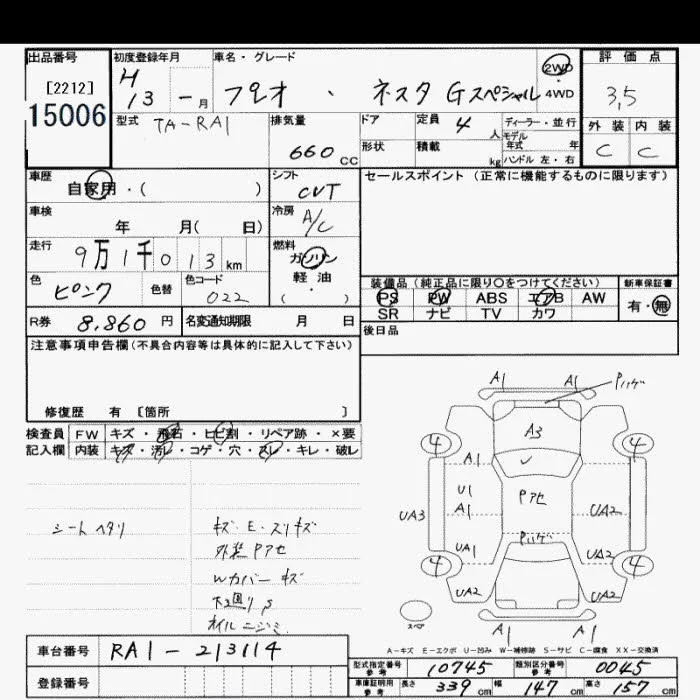 出品番号 初度登録年月 車名・グレード 評価点
[2212] H 2WD
15006 13 - 月 プレオ ・ ネスタ Gスペシャル 4WD 3,5
型式 排気量 ドア 定員 ディーラー・並行 外装 内装
TA-RA1 4人 モデル年式 年
660 CC 形状 積載 kg ハンドル 左・右 C C
車歴 シフト セールスポイント(正常に機能するものに限ります)
自家用・( ) CVT
車検 冷房
年 月( 日) A/C
走行 燃料
9万1千013 km ガソリン
色 色替 色コード 軽・油 装備品(純正品に限り○をつけてください) 新車保証書
ピンク 022 ( ・ ) PS PW ABS エアB AW 有・無
SR ナビ TV カワ
R券 8,860 円 名変通知期限 月 日 後日品
注意事項申告欄(不具合内容等は具体的に記入して下さい)
修復歴 有 [箇所 ]
検査員 FW キズ・飛石・ヒビ割・リペア跡・×要
記入欄 内装 キズ・汚レ・コゲ・穴・スレ・キレ・破レ
A1 A1 Pハゲ
4 A3 4
A1
U1 Pアセ
A1
UA3 UA2
UA1 Pハゲ UA2
4 4
UA2 UA2
スペア A1 A1
シートヘタリ キズ・E・スリキズ
外装Pアセ
Wカバーキズ
下廻りS
オイルニジミ
A-キズ E-エクボ U-凹み W-補修跡 S-サビ C-腐食 XX-交換済
車台番号 RA1-213114
登録番号
型式指定番号 参考 10745 類別区分番号 参考 0045
車庫証明用 参考 長さ 339 cm 幅 147 cm 高さ 157 cm